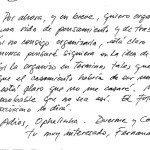 Por ahora, y en breve, quiero organ
una vida de pensamiento y de tra
Si no consigo organizarla, está claro
nunca pensaré siquiera en la idea de
Si la organizo en términos tales que
que el casamiento habría de ser un
está claro que no me casaré.
probable que no sea así. El Fut
próximo. Se dirá.
Adiós, Ophelinha. Duerme
tu muy interesado, Fernando